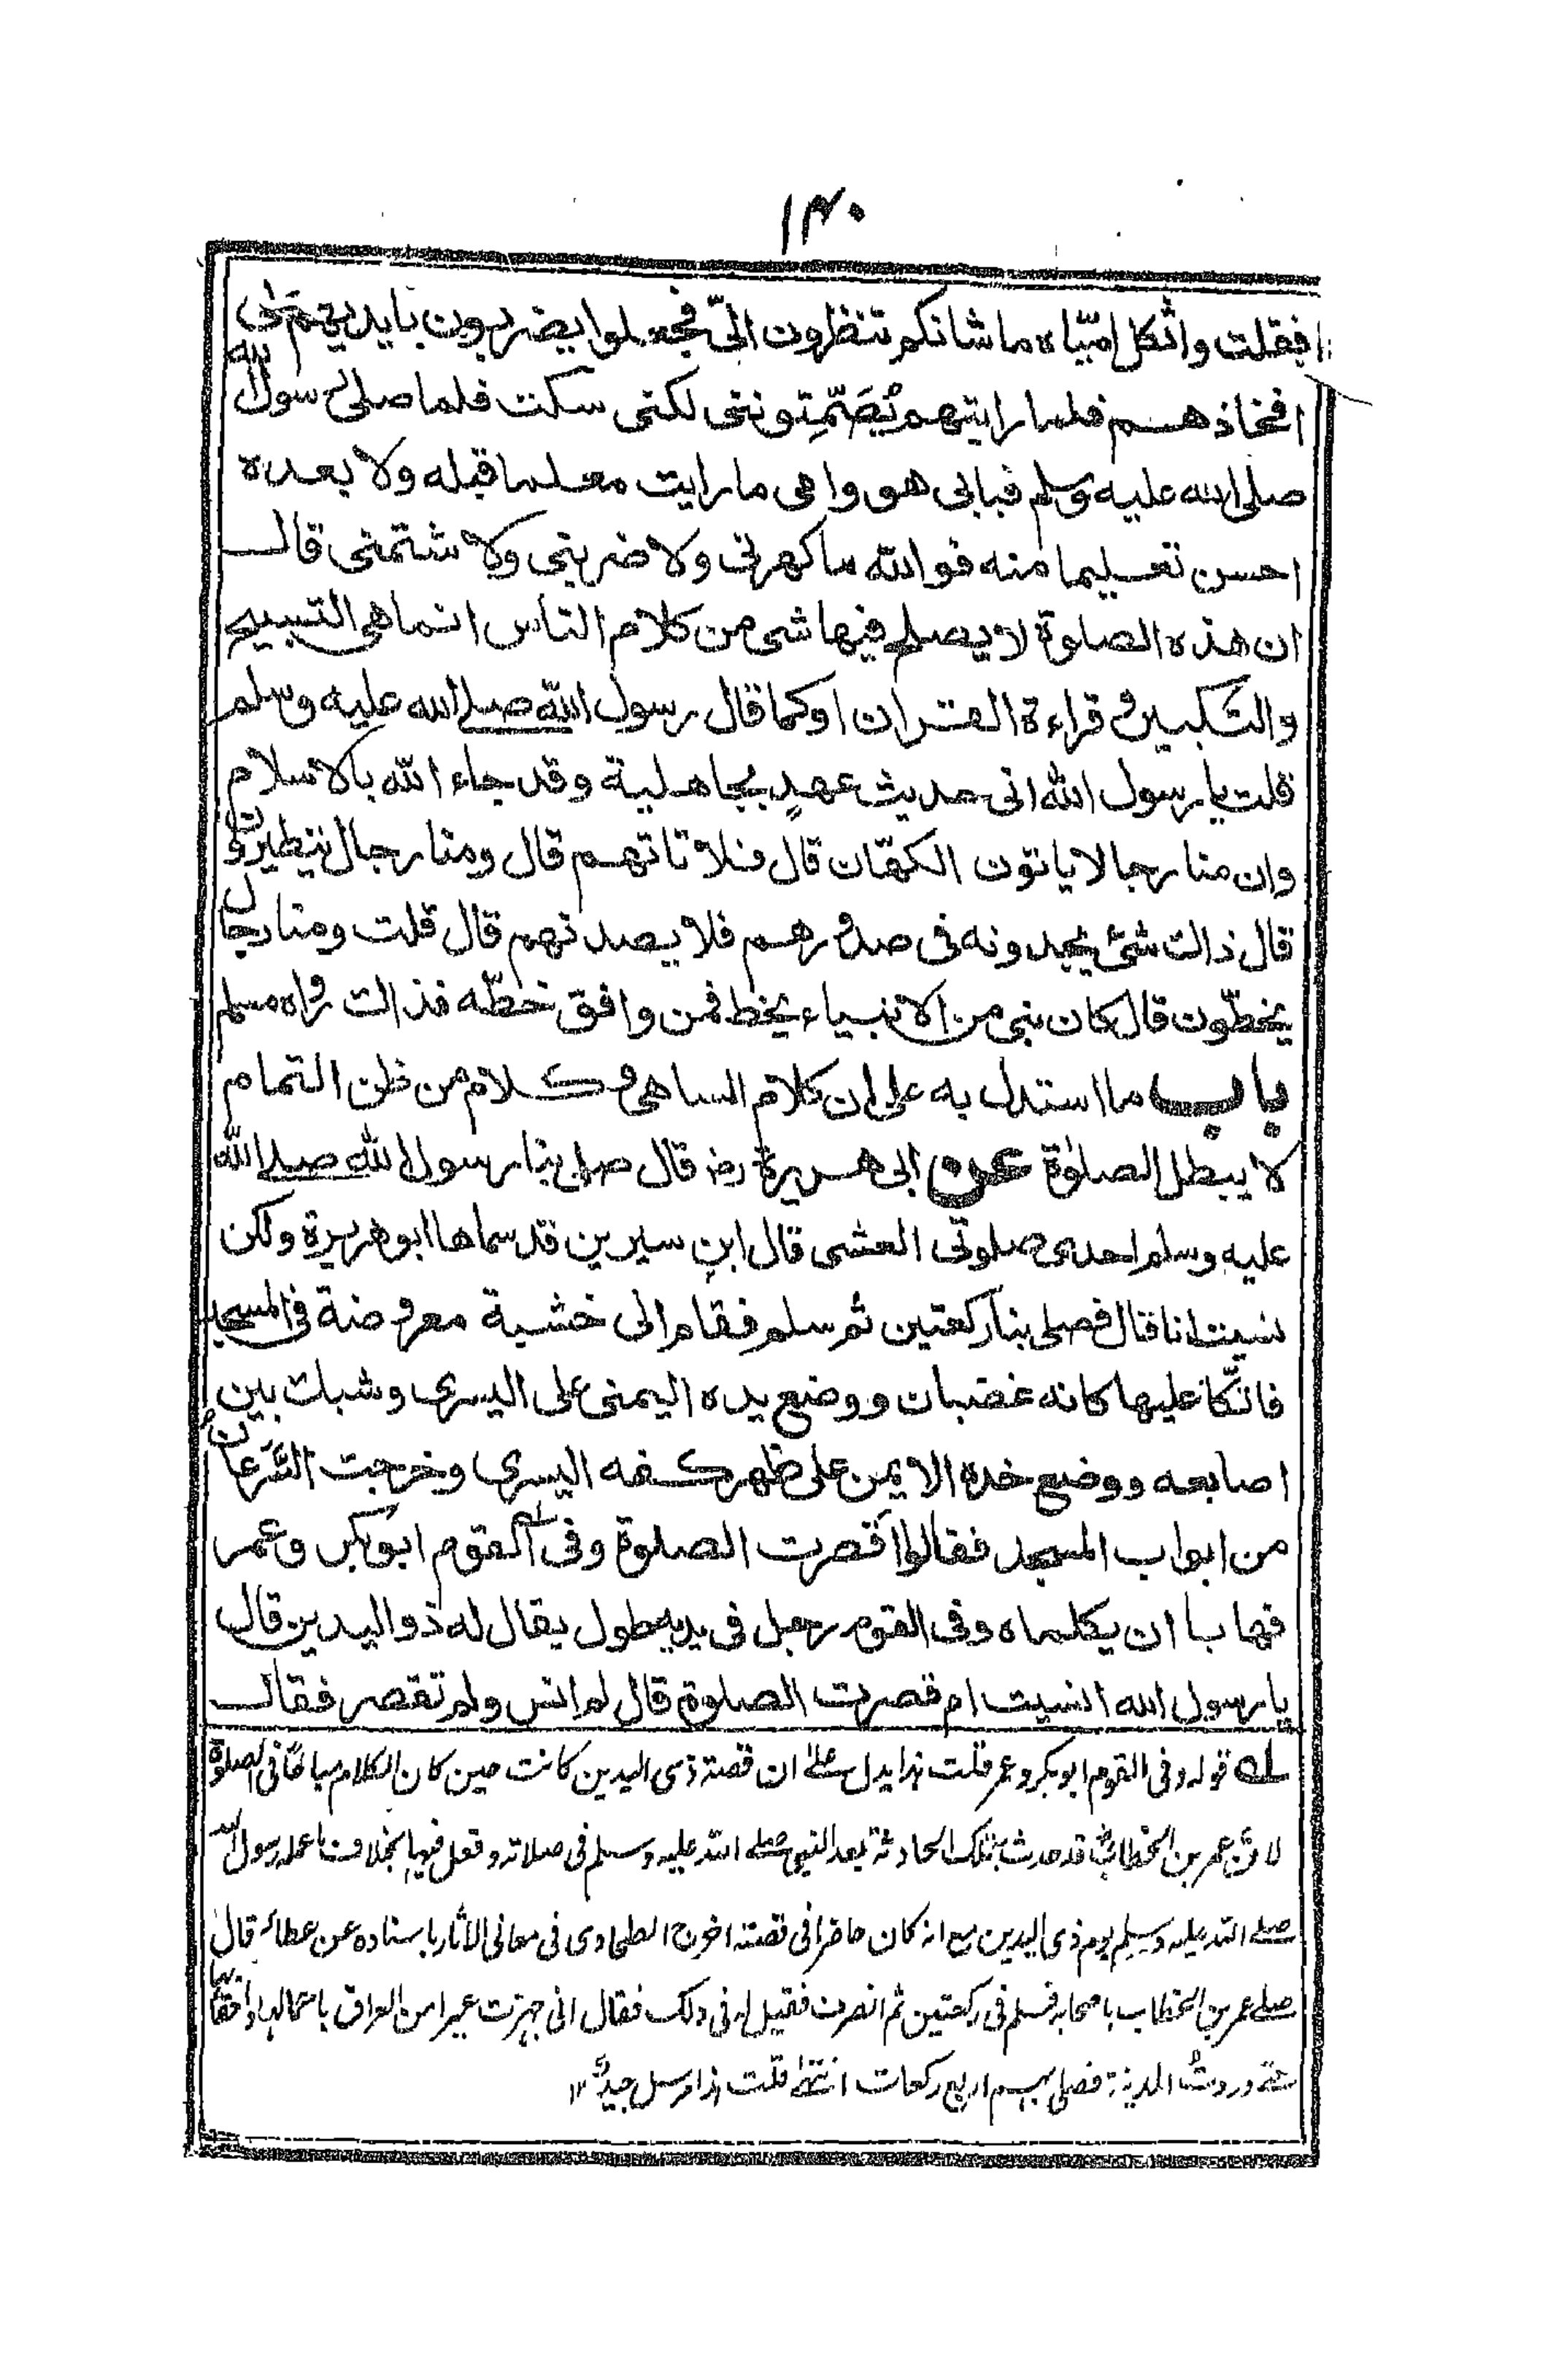 ۱۴۰
فقلت واثكل امّياه ما شانكم تنظرون الىّ فجعلوا يضربون بايديهم على
افخاذهم فلما رايتهم يُصَمِّتوننى لكنى سكت فلما صلى رسول الله
صلى الله عليه وسلم فبابى هو وامى ما رايت معلما قبله ولا بعده
احسن تعليما منه فوالله ما كهرنى ولا ضربنى ولا شتمنى قال
ان هذه الصلوة لا يصلح فيها شى من كلام الناس انما هى التسبيح
والتكبير و قراءة القران او كما قال رسول الله صلى الله عليه وسلم
قلت يا رسول الله انى حديث عهدٍ بجاهلية وقد جاء الله بالاسلام
وان منا رجالا ياتون الكهّان قال فلا تاتهم قال ومنا رجال يتطيرون
قال ذالك شئ يجدونه فى صدورهم فلا يصدنهم قال قلت ومنا رجال
يخطّون قال كان نبى من الانبياء يخط فمن وافق خطّه فذالك رواه مسلم
باب ما استدل به على ان كلام الساهى و كلام من ظن التمام
لا يبطل الصلوٰة عن ابى هريرة رض قال صلى بنا رسول الله صلى الله
عليه وسلم احدى صلوتى العشى قال ابن سيرين قد سماها ابو هريرة ولكن
نسيت انا قال فصلى بنا ركعتين ثم سلم فقام الى خشبة معروضة فى المسجد
فاتّكا عليها كانه غضبان و وضع يده اليمنى على اليسرى وشبك بين
اصابعه و وضع خده الايمن على ظهر كفه اليسرى وخرجت السَّرَعانُ
من ابواب المسجد فقالوا أقصرت الصلوة وفى القوم ابو بكر وعمر
فهابا ان يكلماه وفى القوم رجل فى يديه طول يقال له ذو اليدين قال
يا رسول الله انسيت ام قصرت الصلوة قال لم انس ولم تقصر فقال
لہ قوله وفى القوم ابو بكر وعمر قلت هذا يدل على ان قصة ذى اليدين كانت حين كان الكلام مباحًا فى الصلوة
لانّ عمر بن الخطابؓ قد حدث بتلك الحادثة بعد النبى صلى الله عليه وسلم فى صلاته وفعل فيها بخلاف ما عمله رسول الله
صلى الله عليه وسلم يوم ذى اليدين مع انه كان حاضرا فى قصته اخرج الطحاوى فى معانى الاثار باسناده عن عطاء قال
صلى عمر بن الخطاب باصحابه فسلم فى ركعتين ثم انصرف فقيل له فى ذلك فقال انى جهزت عيرا من العراق باحمالها واحقابها
حتى وردت المدينة فصلى بهم اربع ركعات انتهى قلت هذا مرسل جيدٌ ۱۲